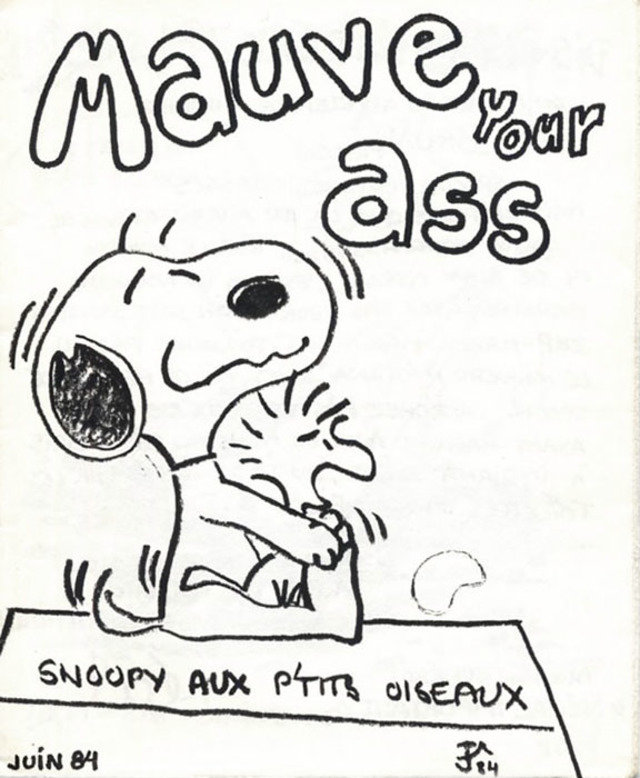 Mauve
your
ass
SNOOPY AUX P'TITS OISEAUX
JUIN 84
84